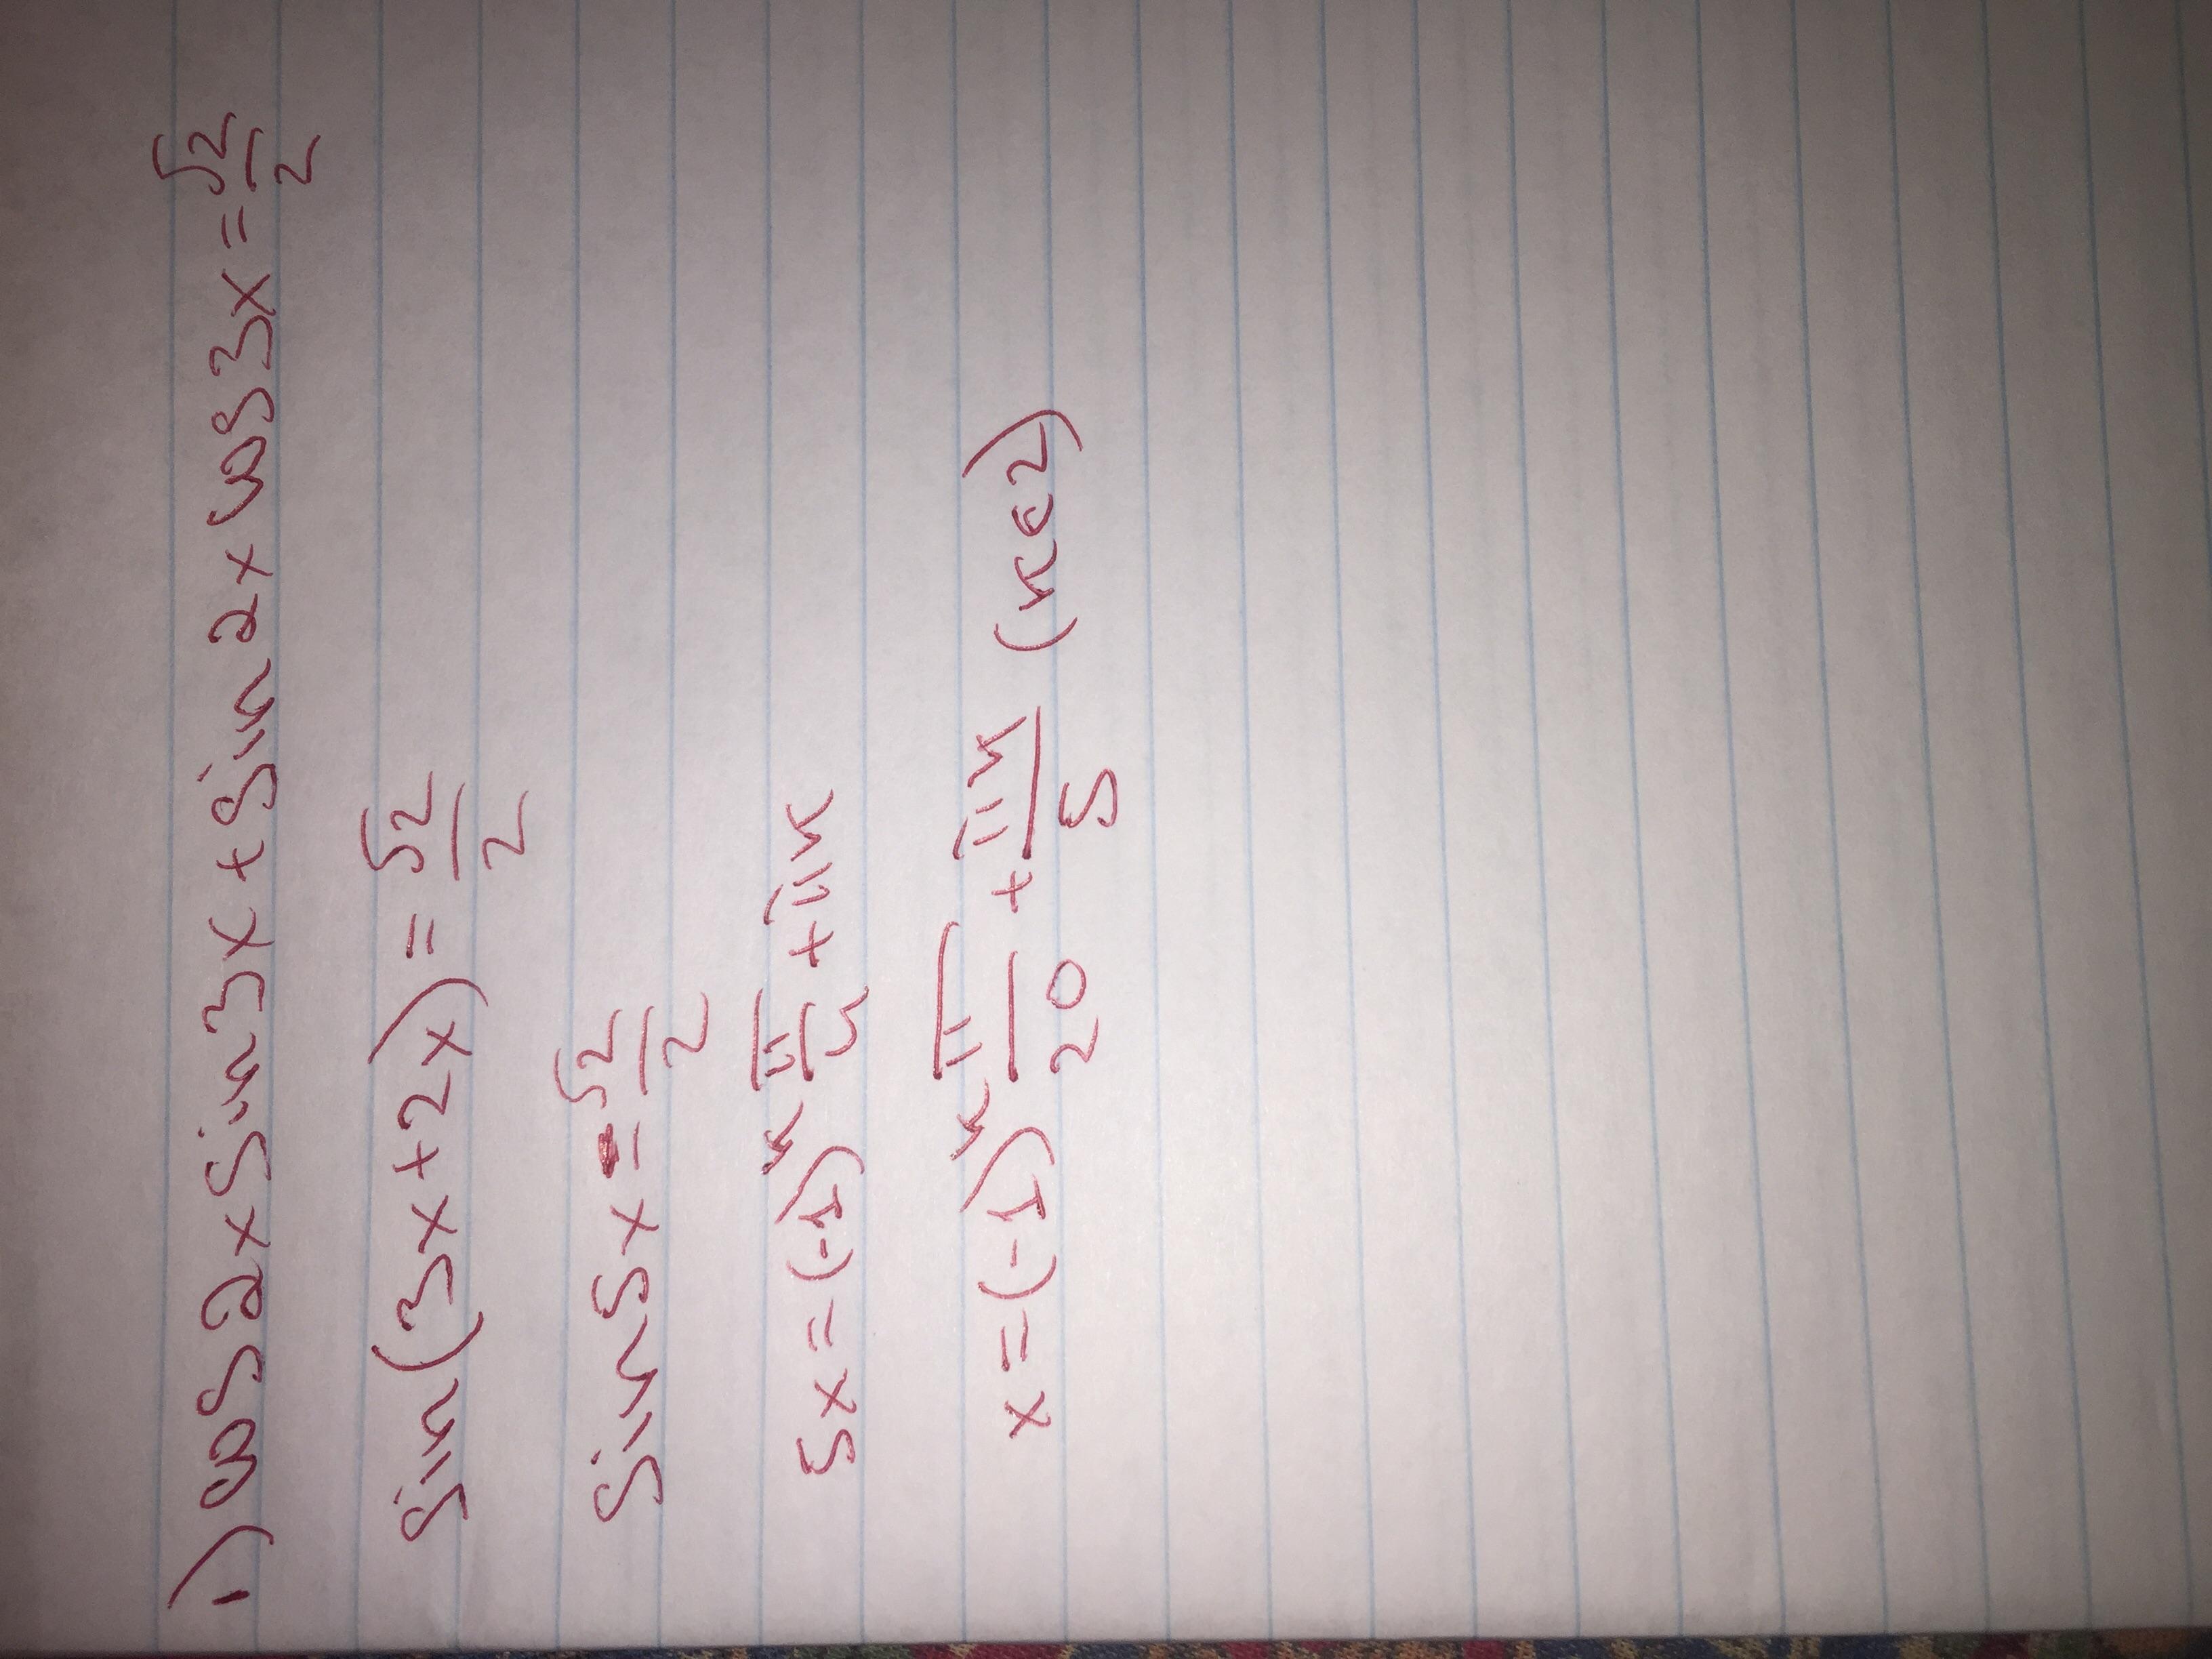 1) cos2xsin3x+sin2xcos3x=√2/2
sin(3x+2x)=√2/2
sin5x=√2/2
5x=(-1)ᵏ π/4 +πk
x=(-1)ᵏ π/20 + πk/5 (k∈Z)